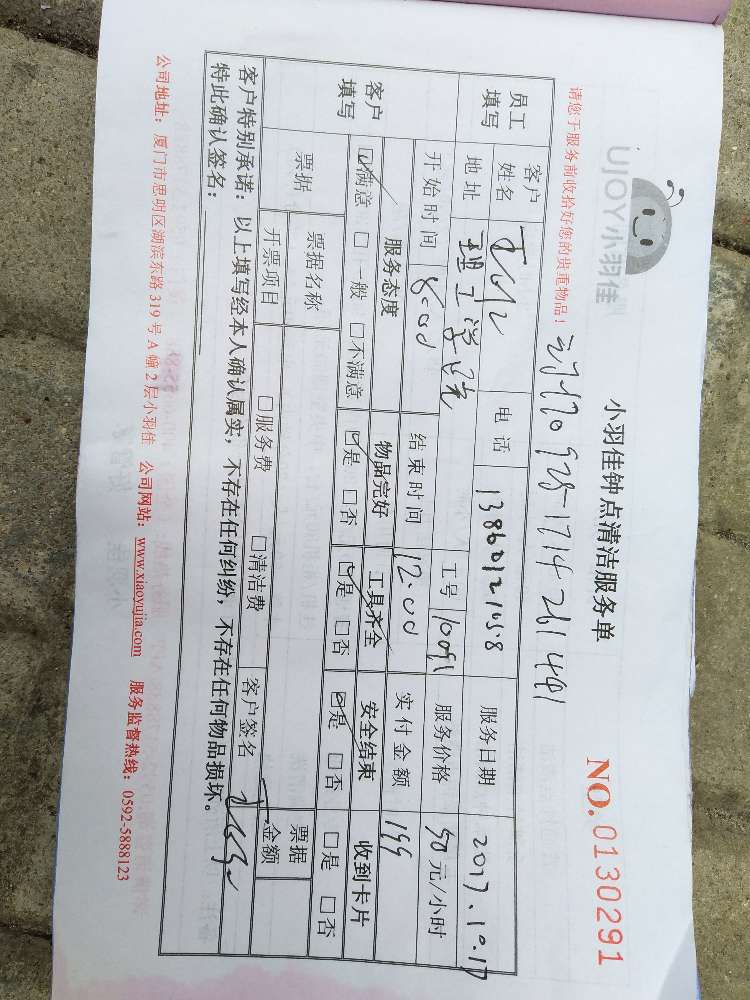 UJOY小羽佳
小羽佳钟点清洁服务单
NO.0130291
请您于服务前收拾好您的贵重物品！
员工填写
客户姓名
电话 13860121058
服务日期 2017.10.17
地址 理工学院
工号
服务价格 50元/小时
开始时间 8:00
结束时间 12:00
实付金额 199
客户填写
服务态度 物品完好 工具齐全 安全结束 收到卡片
☑满意 □一般 □不满意 ☑是 □否 ☑是 □否 ☑是 □否 □是 □否
票据
票据名称
票据金额
开票项目 □服务费 □清洁费
客户签名
客户特别承诺：以上填写经本人确认属实，不存在任何纠纷，不存在任何物品损坏。
特此确认签名：
公司地址：厦门市思明区湖滨东路319号A幢2层小羽佳 公司网站：www.xiaoyujia.com 服务监督热线：0592-5888123